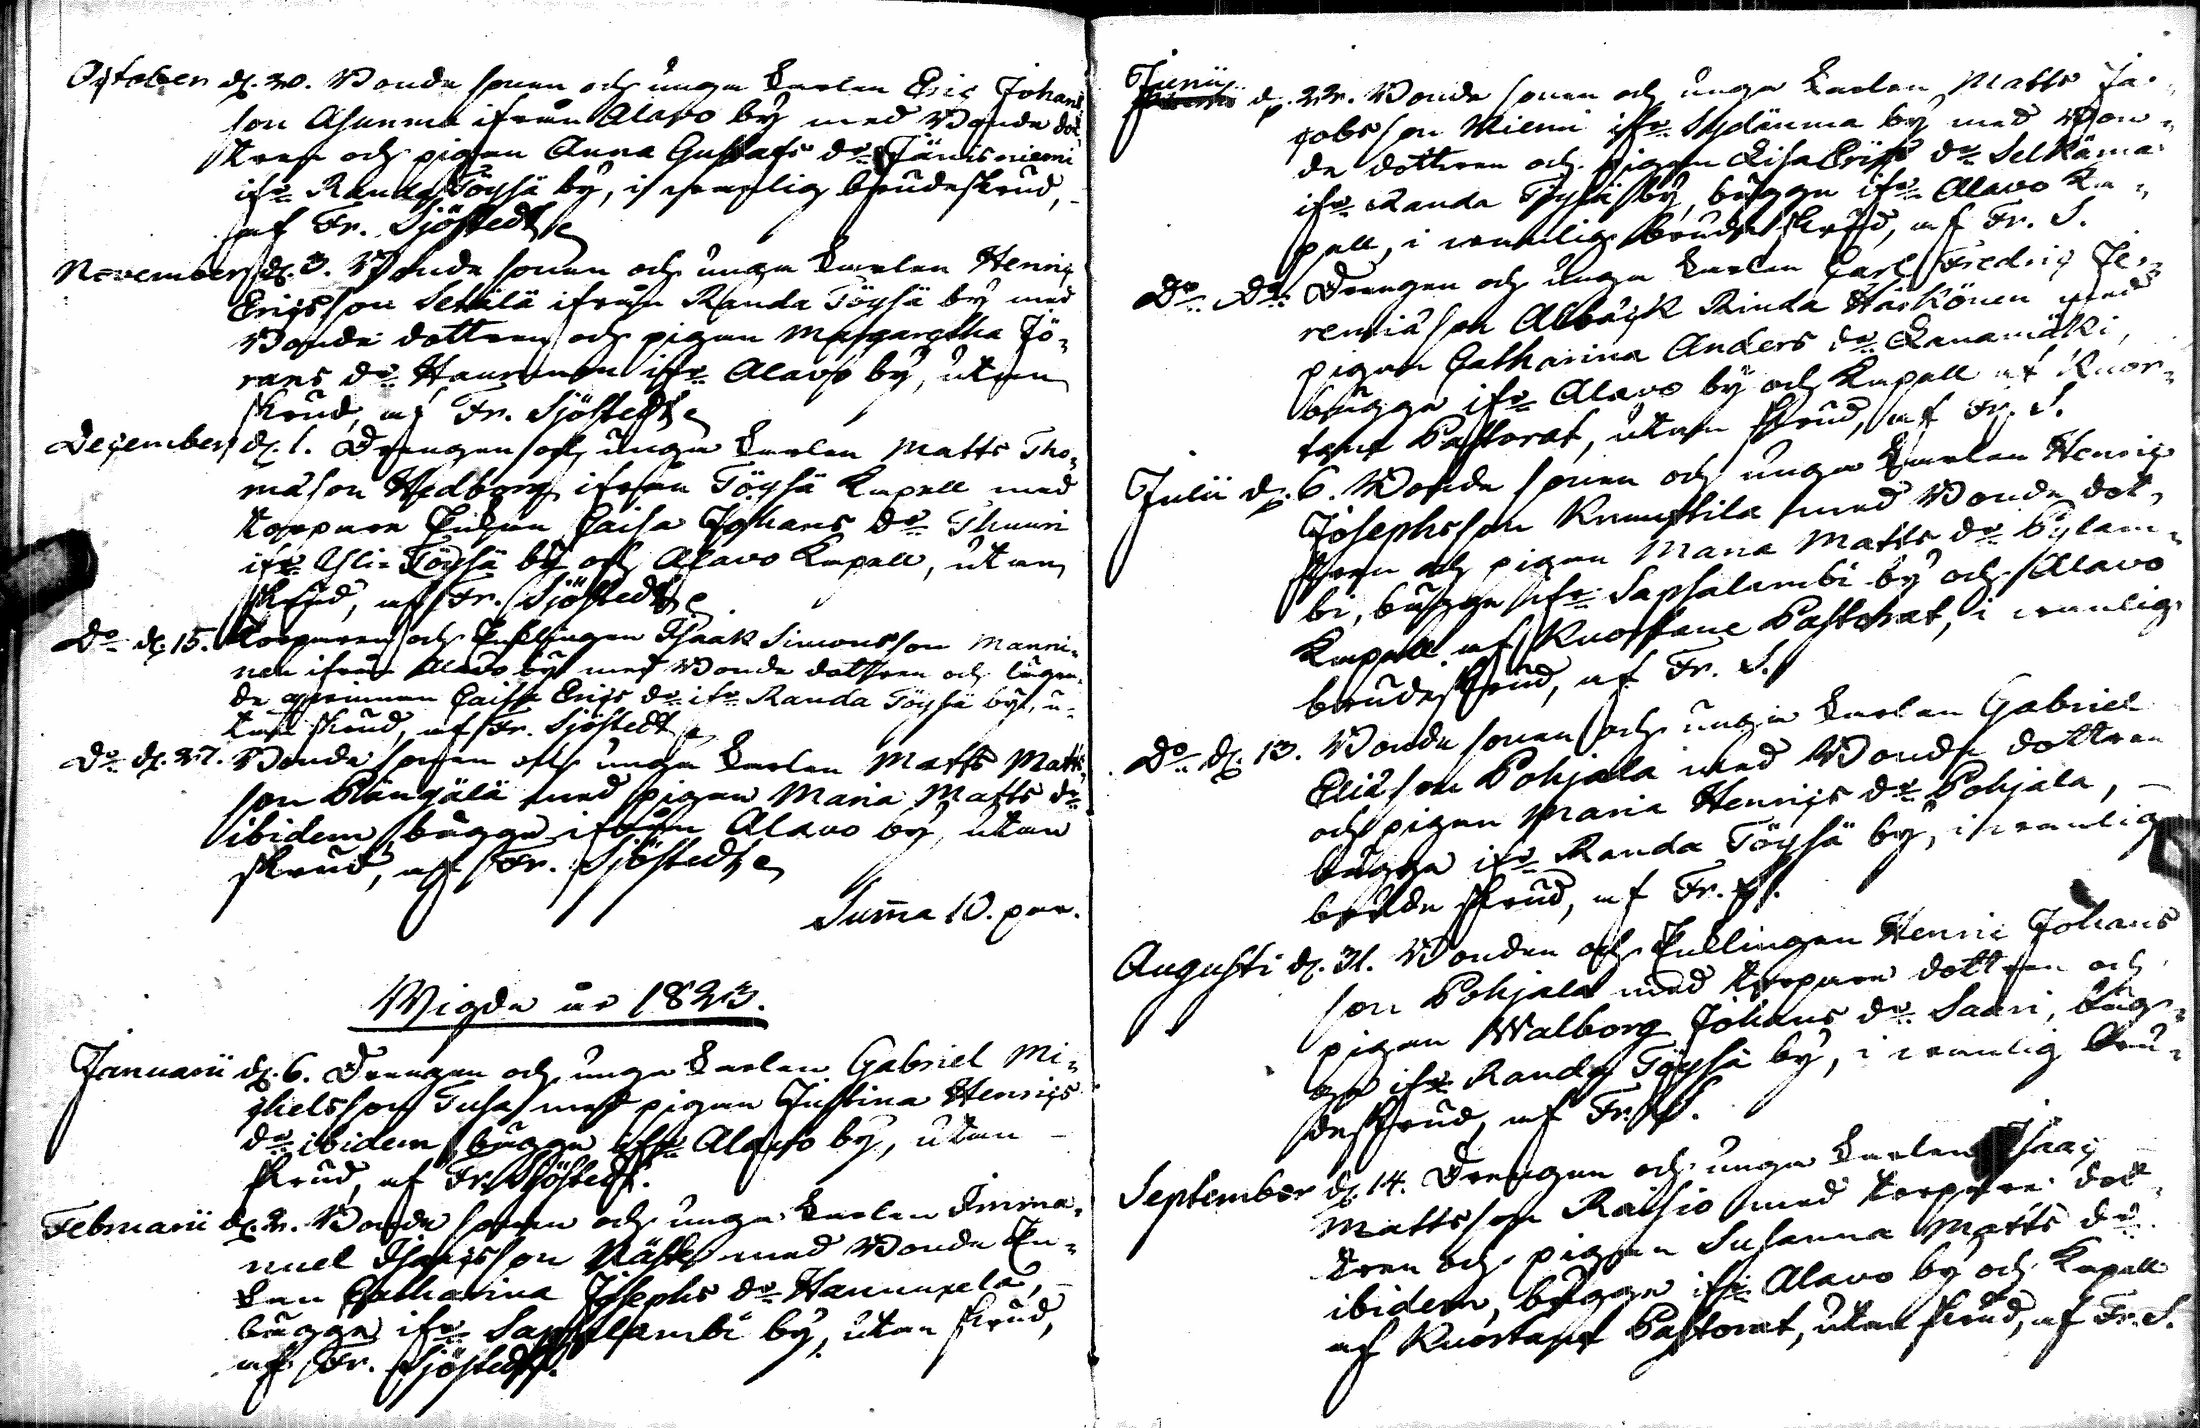 October d. 20. Bonde sonen och unga karlen Eric Johans
son Asunma ifrån Alavo by med Bonde dot
tren och pigan Anna Gustafs dr. Jänisniemi
ifr. Randa Töysä by, i vanlig brudeskrud,
af Fr. Sjöstedt
November d. 3. Bonde sonen och unga karlen Henric
Ericsson Setälä ifrån Randa Töysä by med
Bonde dottren och pigan Margaretha Jö-
rans dr. Haunonen ifr. Alavo by, utan
skrud, af Fr. Sjöstedt
December d. 1. Drengen och unga karlen Matts Tho-
mason Hedborg ifrån Töysä Kapell med
torpare Enkan Caisa Johans dr. Thuuri
ifr. Ylis Töysä by och Alavo Kapell, utan
skrud, af Fr. Sjöstedt
Do d. 15. Torparen och Enklingen Isaak Simonsson Manni-
nen ifrån Alavo by med Bonde dottren och lägra-
de qvinnan Caisa Erics dr. ifr. Randa Töysä by, u-
tan skrud, af Fr. Sjöstedt
Do d. 27. Bonde sonen och unga karlen Matts Matts
son Rängälä med pigan Maria Matts dr.
ibidem, bägge ifrån Alavo by, utan
skrud, af Fr. Sjöstedt
Summa 10. par.
Wigde år 1823.
Januarii d. 6. Drengen och unga karlen Gabriel Mi-
chelsson Tusa med pigan Justina Henrics
dr. ibidem, bägge ifr. Alavo by, utan
skrud, af Fr. Sjöstedt.
Februarii d. 2. Bonde sonen och unga karlen Imma-
nuel Isacsson Näsi med Bonde En-
kan Catharina Josephs dr. Hannuxela,
bägge ifr. Sapsalambi by, utan skrud,
af Fr. Sjöstedt.
Junii
d. 22. Bonde sonen och unga karlen Matts Ja-
cobsson Niemi ifr. Sydänma by med Bon-
de dottren och pigan Lisa Erics dr. Selkäma
ifr. Randa Töysä by, bägge ifr. Alavo Ka-
pell, i vanlig brudeskrud, af Fr. S.
Do Do Drengen och unga karlen Carl Fredric Je-
remiason Albäck Rinda Härkönen med
pigan Catharina Anders dr. Lanamäki,
bägge ifr. Alavo by och Kapell af Kuor-
tane Pastorat, utan skrud, af Fr. S.
Julii d. 6. Bonde sonen och unga karlen Henric
Josephsson Knuuttila med Bonde dot-
tren och pigan Maria Matts dr. Pylam-
bi, bägge ifr. Sapsalambi by och Alavo
Kapell af Kuortane Pastorat, i vanlig
brudeskrud, af Fr. S.
Do d. 13. Bonde sonen och unga karlen Gabriel
Eliason Pohjala med Bonde dottren
och pigan Maria Henrics dr. Pohjala,
bägge ifr. Randa Töysä by, i vanlig
brudeskrud, af Fr. S.
Augusti d. 31. Bonden och Enklingen Henric Johans
son Pohjala med torpare dottren och
pigan Walborg Johans dr. Saari, bäg-
ge ifr. Randa Töysä by, i vanlig bru-
deskrud, af Fr. S.
September d. 14. Drengen och unga karlen Isaac
Mattsson Raisio med torpare dot-
tren och pigan Susanna Matts dr.
ibidem, bägge ifr. Alavo by och Kapell
af Kuortane Pastorat, utan skrud, af Fr. S.